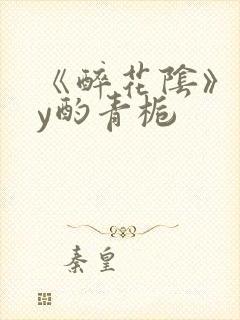 《醉花陰》
y酌青栀
秦皇